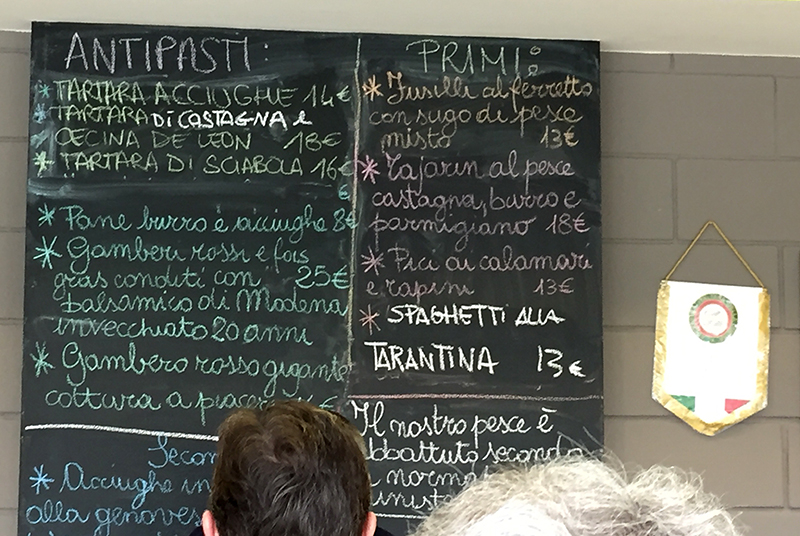 ANTIPASTI:
* TARTARA ACCIUGHE 14€
* TARTARA DI CASTAGNA e
CECINA DE LEON 18€
* TARTARA DI SCIABOLA 16€
€
* Pane burro e acciughe 8€
* Gamberi rossi e fois
gras conditi con 25€
balsamico di Modena
invecchiato 20 anni
* Gambero rosso gigante
cottura a
* Acciughe
alla
PRIMI:
* Fusilli al ferretto
con sugo di pesce
misto 13€
* Tajarin al pesce
castagna, burro e
parmigiano 18€
* Pici ai calamari
e rapini 13€
* SPAGHETTI ALLA
TARANTINA 13€
Il nostro pesce è
secondo